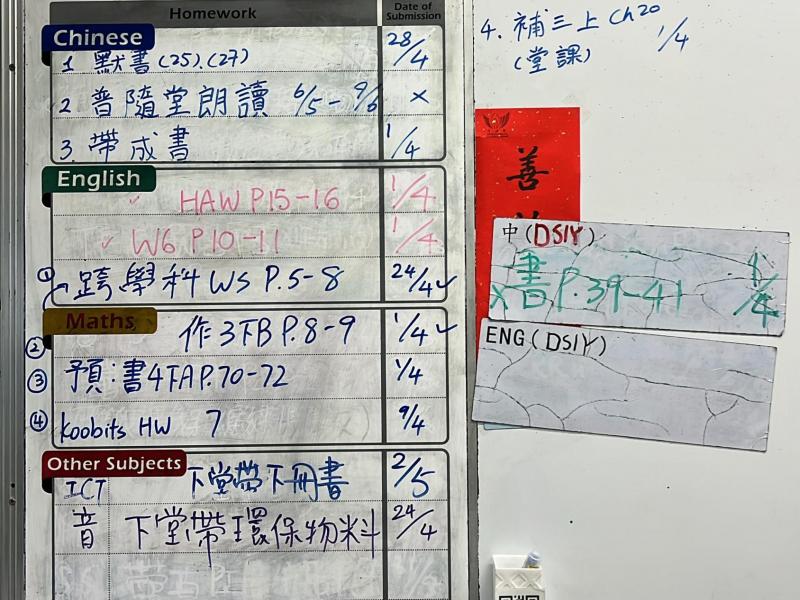 Homework
Date of Submission
Chinese
1 默書(25),(27) 28/4
2 普隨堂朗讀 6/5-9/6 ×
3. 帶成書 1/4
English
✓ HAW P15-16 1/4
✓ W6 P10-11 1/4
① 跨學科 WS P.5-8 24/4 ✓
Maths
② 作3下B P.8-9 1/4 ✓
③ 預:書4下A P.70-72 1/4
④ koobits HW 7 9/4
Other Subjects
ICT 下堂帶下冊書 2/5
音 下堂帶環保物料 24/4
4. 補三上 Ch20 1/4
(堂課)
善
中(DSIY)
× 書 P.39-41 1/4
ENG(DSIY)